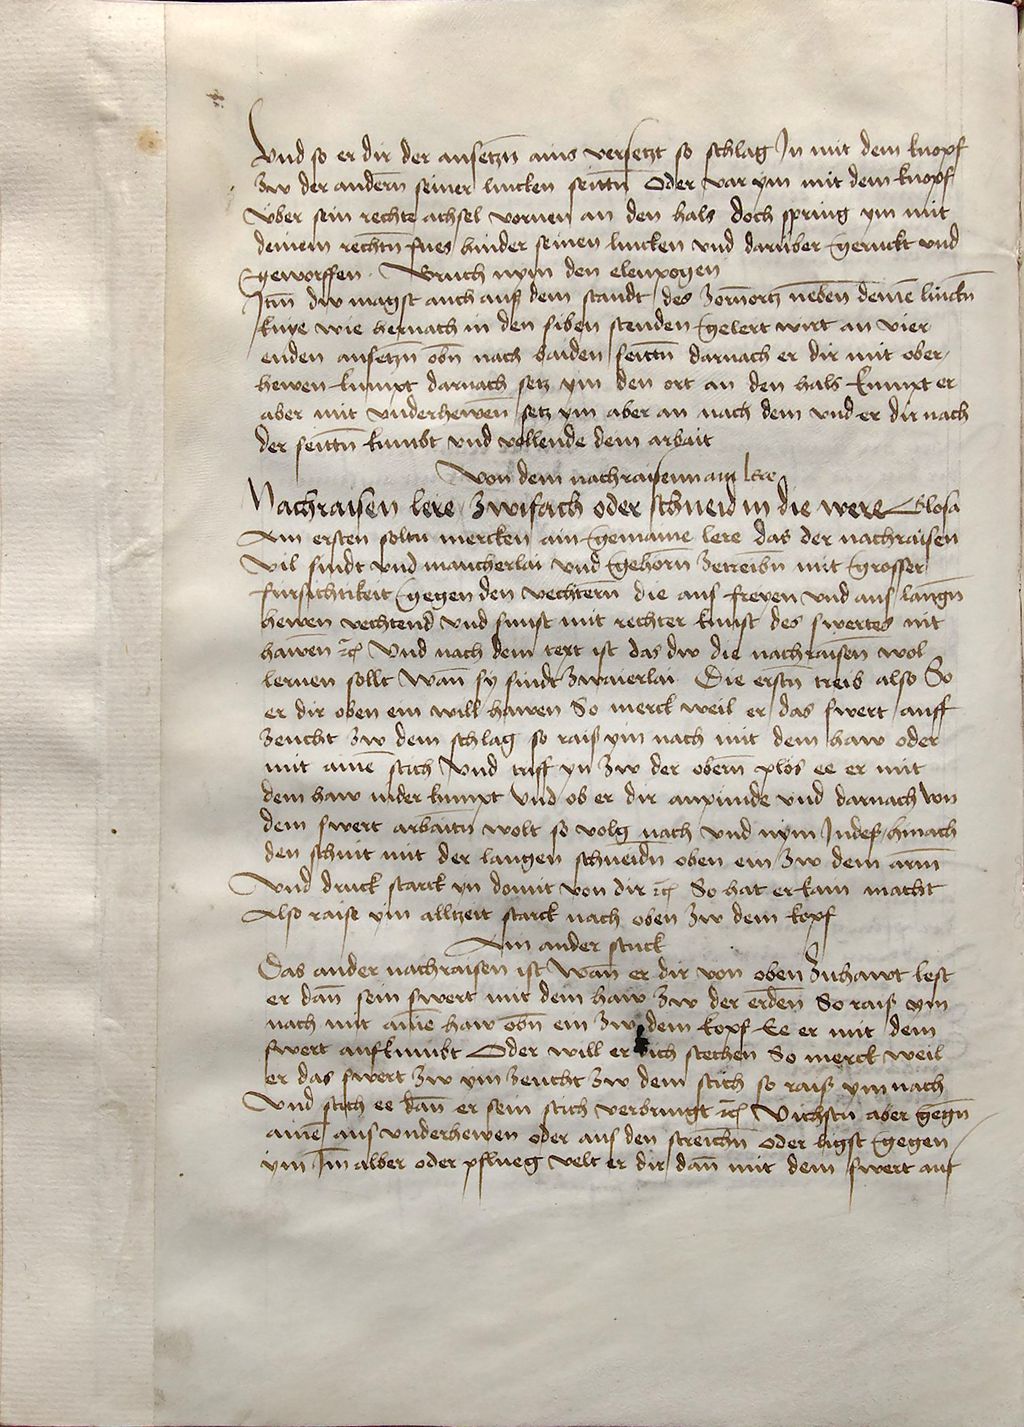 Und so er dir der ansetzn̄ ains versetzt so schlag Jn mit dem knopf
zw der anderñ seiner lincken seittñ Oder var ym mit dem knopf
über sein rechte achsel vornen an den hals doch spring ym mit
deinem rechtn̄ fues hinder seinen lincken vnd darüber geruckt vnd
geworffen · Bruch nym den elenpogen
Itm̄ dw magst auch auß dem standt des zornortz nebeñ demē linckñ
knye wie hernach in den siben stenden gelert wirt an vier
enden ansetzn̄ obñ nach baiden seittn̄ darnach er dir mit ober
hewen kumpt darnach setz ym den ort an den hals kumpt er
aber mit vnderheweñ setz ym aber an nach dem vnd er dir nach
der seittn̄ kumbt vnd vollende dem arbait
Von dem nachraisenn ain lere
Nachraisen lere zwifach oder schneid in die were Glosa
Am ersten soltu mercken ain gemaine lere das der nachraisen
vil sindt vnd mancherlai vnd gehorñ zetreibñ mit grosser
fursichtikeit gegen den vechterñ die aus freyen vnd aus langñ
hewen vechtend vnd sunst mit rechter kunst des swertes nit
hawen ⁊c̄ Und nach dem text ist das dw die nachraiseñ wol
lernen sollt Wañ sy sindt zwaierlai Die erstñ treib also So
er dir oben ein will hawen So merck weil er das swert auff
zeucht zw dem schlag so raiß ym nach mit dem haw oder
mit ainē stich vnd triff yn zw der oberñ plos ee er mit
dem haw nider kumpt vnd ob er dir anpunde vnd darnach von
dem swert arbaittñ wolt so volg nach vnd nym Jndeß hinach
den schnit mit der langen schneidñ oben ein zw dem arm̄
Und druck starck yn domit von dir ⁊c̄ So hat er kain macht
Also raise ym alltzeit starck nach oben zw dem kopf
Am ander stuck
Das ander nachraiseñ ist Wañ er dir von oben zuhawt lest
er dañ sein swert mit dem haw zw der erdeñ So raiß ym
nach mit ainē haw obñ ein zw dem kopf Ee er mit dem
swert aufkumbt Oder will er dich stechen So merck weil
er das swert zw ym zeucht zw dem stich so raiß ym nach
Und stich ee dañ er sein stich verbringt ⁊c̄ Vichstu aber gegñ
ainē aus vnderhewen oder aus den streichñ oder ligst gegen
ym Im̄ alber oder pflueg velt er dir dañ mit dem swert auf